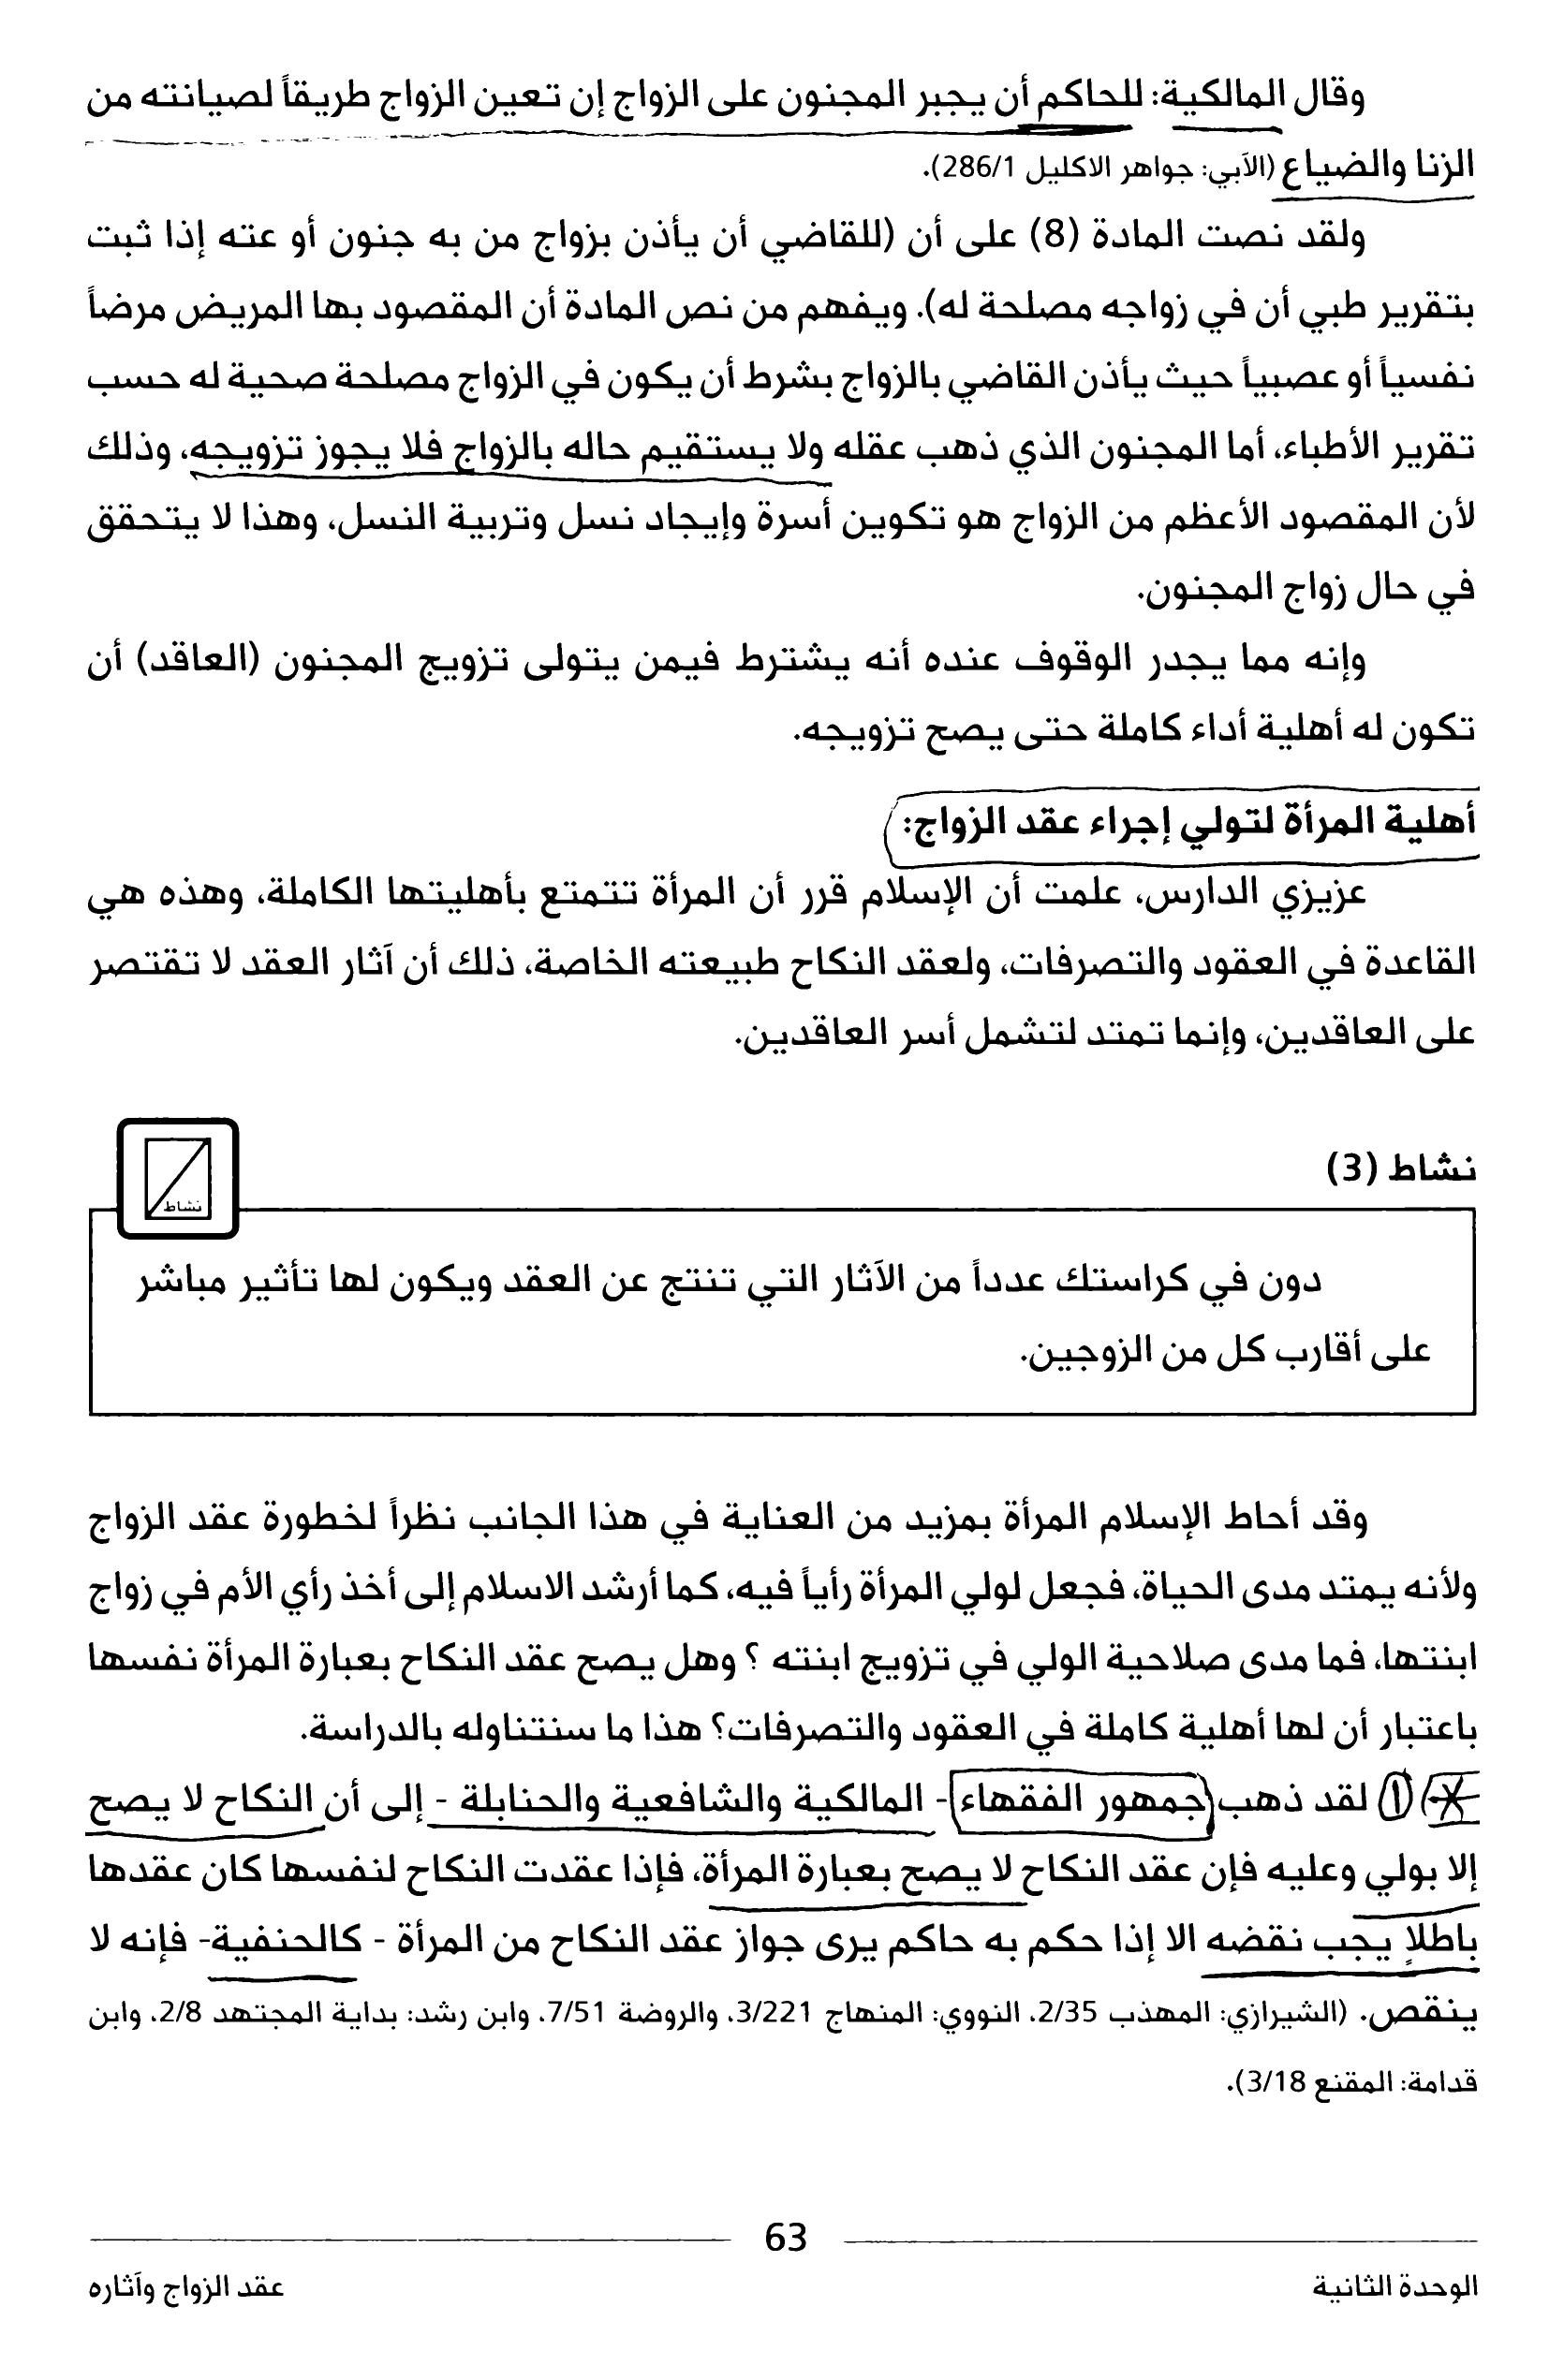 وقال المالكية: للحاكم أن يجبر المجنون على الزواج إن تعين الزواج طريقاً لصيانته من
الزنا والضياع (الآبي: جواهر الاكليل 286/1).
ولقد نصت المادة (8) على أن (للقاضي أن يأذن بزواج من به جنون أو عته إذا ثبت
بتقرير طبي أن في زواجه مصلحة له). ويفهم من نص المادة أن المقصود بها المريض مرضاً
نفسياً أو عصبياً حيث يأذن القاضي بالزواج بشرط أن يكون في الزواج مصلحة صحية له حسب
تقرير الأطباء، أما المجنون الذي ذهب عقله ولا يستقيم حاله بالزواج فلا يجوز تزويجه، وذلك
لأن المقصود الأعظم من الزواج هو تكوين أسرة وإيجاد نسل وتربية النسل، وهذا لا يتحقق
في حال زواج المجنون.
وإنه مما يجدر الوقوف عنده أنه يشترط فيمن يتولى تزويج المجنون (العاقد) أن
تكون له أهلية أداء كاملة حتى يصح تزويجه.
أهلية المرأة لتولي إجراء عقد الزواج:
عزيزي الدارس، علمت أن الإسلام قرر أن المرأة تتمتع بأهليتها الكاملة، وهذه هي
القاعدة في العقود والتصرفات، ولعقد النكاح طبيعته الخاصة، ذلك أن آثار العقد لا تقتصر
على العاقدين، وإنما تمتد لتشمل أسر العاقدين.
نشاط (3)
نشاط
دون في كراستك عدداً من الآثار التي تنتج عن العقد ويكون لها تأثير مباشر
على أقارب كل من الزوجين.
وقد أحاط الإسلام المرأة بمزيد من العناية في هذا الجانب نظراً لخطورة عقد الزواج
ولأنه يمتد مدى الحياة، فجعل لولي المرأة رأياً فيه، كما أرشد الاسلام إلى أخذ رأي الأم في زواج
ابنتها، فما مدى صلاحية الولي في تزويج ابنته ؟ وهل يصح عقد النكاح بعبارة المرأة نفسها
باعتبار أن لها أهلية كاملة في العقود والتصرفات؟ هذا ما سنتناوله بالدراسة.
* ١ لقد ذهب جمهور الفقهاء - المالكية والشافعية والحنابلة - إلى أن النكاح لا يصح
إلا بولي وعليه فإن عقد النكاح لا يصح بعبارة المرأة، فإذا عقدت النكاح لنفسها كان عقدها
باطلاً يجب نقضه الا إذا حكم به حاكم يرى جواز عقد النكاح من المرأة - كالحنفية- فإنه لا
ينقص. (الشيرازي: المهذب 2/35، النووي: المنهاج 3/221، والروضة 7/51، وابن رشد: بداية المجتهد 2/8، وابن
قدامة: المقنع 3/18).
63
الوحدة الثانية
عقد الزواج وآثاره